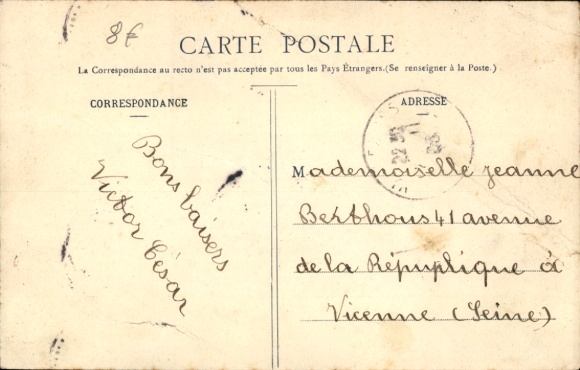 8€
CARTE POSTALE
La Correspondance au recto n'est pas acceptée par tous les Pays Étrangers.(Se renseigner à la Poste.)
CORRESPONDANCE
Bons baisers
Victor César
ADRESSE
Mademoiselle Jeanne
Berthous 41 avenue
de la Répuplique à
Vicenne (Seine)